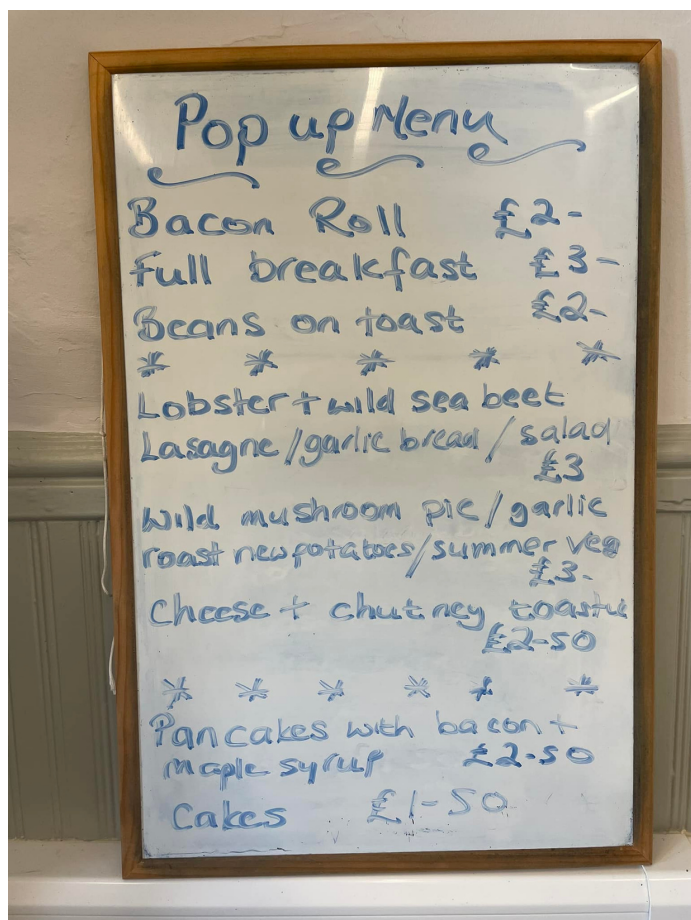 Pop up Menu
Bacon Roll £2-
Full breakfast £3-
Beans on toast £2-
* * * * *
Lobster + wild sea beet
Lasagne / garlic bread / salad
£3
Wild mushroom pie / garlic
roast new potatoes / summer veg
£3-
Cheese + chutney toastie
£2-50
* * * * * *
Pancakes with bacon +
maple syrup £2-50
Cakes £1-50